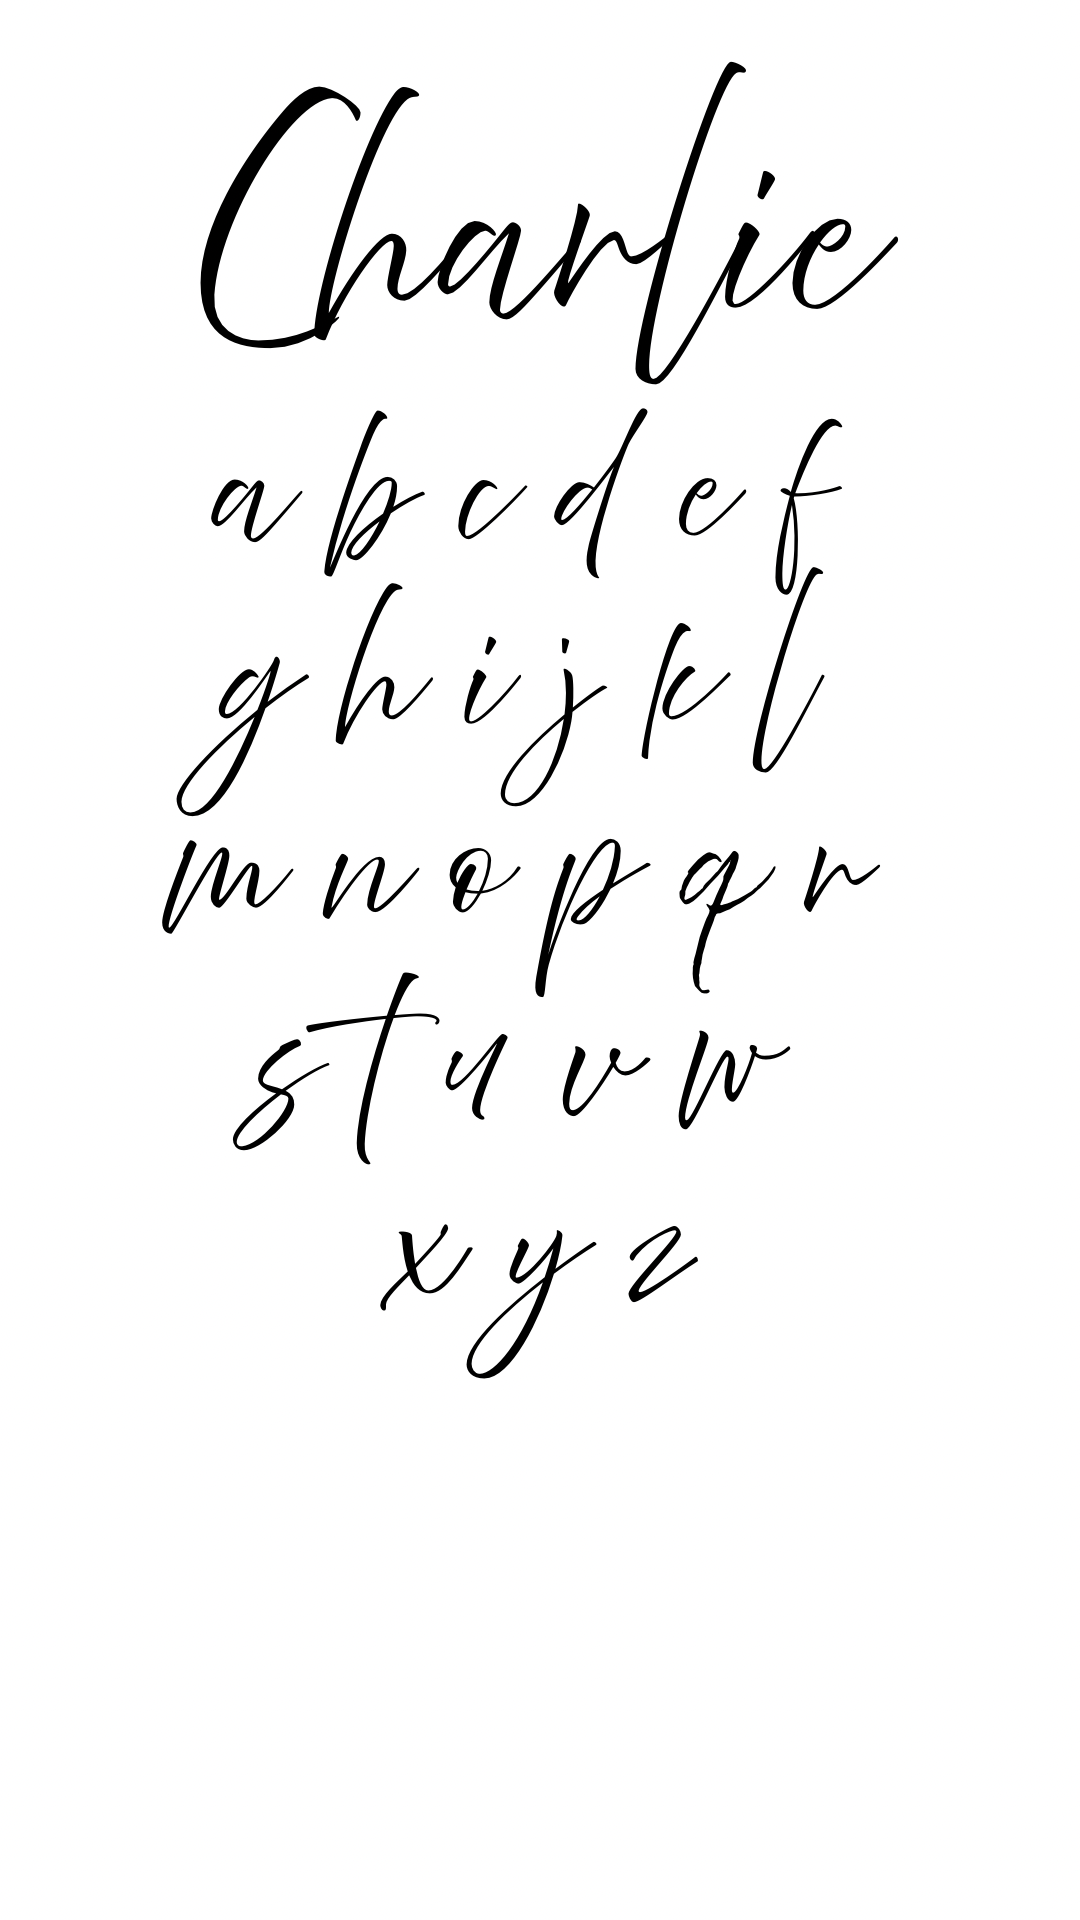 Charlie
a b c d e f
g h i j k l
m n o p q r
s t u v w
x y z